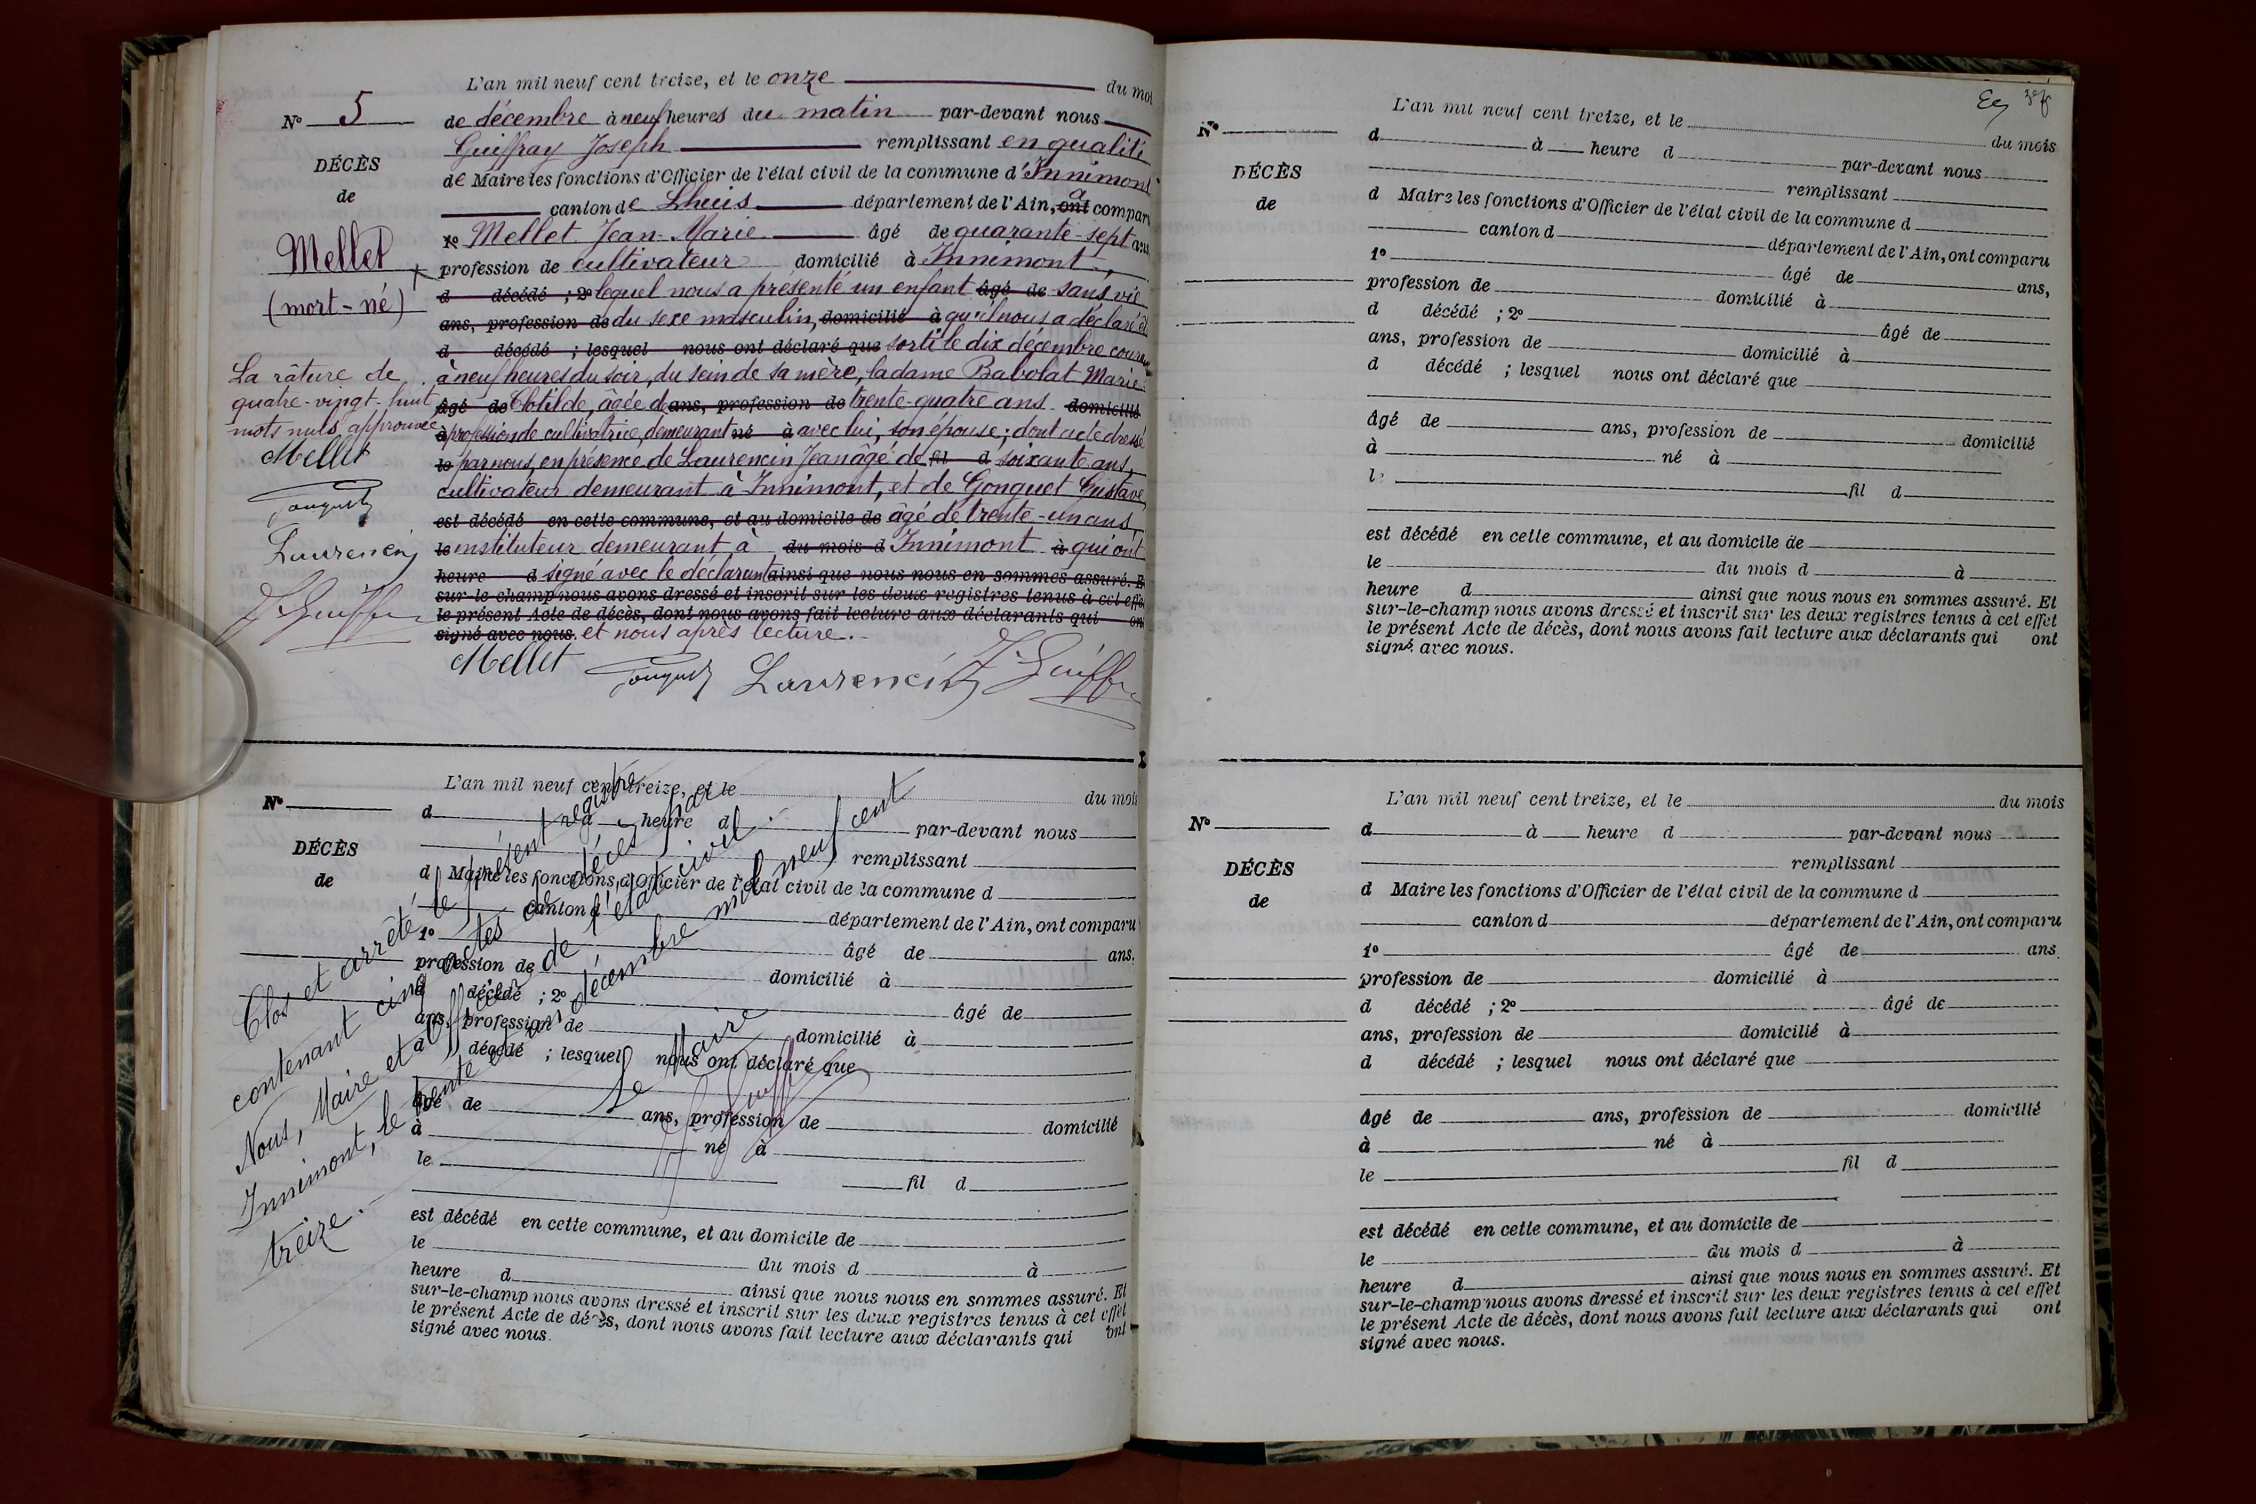 L'an mil neuf cent treize, et le onze du moi
N° 5
de décembre à neuf heures du matin par-devant nous
Guiffray Joseph remplissant en qualité
DÉCÈS
de Maire les fonctions d'Officier de l'état civil de la commune d'Innimont
de
canton de Lhuis département de l'Ain, ont a compar
Mellet
1º Mellet Jean-Marie âgé de quarante-sept ans
profession de cultivateur domicilié à Innimont,
(mort-né)
d décédé ; 2º lequel nous a présenté un enfant âgé de sans vie
ans, profession de du sexe masculin, domicilié à qu'il nous a déclaré êt
d décédé ; lesquel nous ont déclaré que sorti le dix décembre couran
à neuf heures du soir, du sein de sa mère, la dame Babolat Marie
âgé de Clotilde, âgée de ans, profession de trente-quatre ans domicilié
à profession de cultivatrice, demeurant né à avec lui, son épouse ; dont acte dressé
le par nous, en présence de Laurencin Jean âgé de fil d soixante ans,
cultivateur demeurant à Innimont, et de Gonguet Gustave,
est décédé en cette commune, et au domicile de âgé de trente-un ans,
le instituteur demeurant à du mois d Innimont à qui ont
heure d signé avec le déclarant ainsi que nous nous en sommes assuré. E
sur-le-champ nous avons dressé et inscrit sur les deux registres tenus à cet effet
le présent Acte de décès, dont nous avons fait lecture aux déclarants qui ont
signé avec nous. et nous après lecture.
Mellet Gonguet Laurencin J. Guiffray
La râture de
quatre-vingt-huit
mots nuls approuvée
Mellet
Gonguet
Laurencin
J. Guiffray
L'an mil neuf cent treize, et le du mois
N°
d à heure d par-devant nous
remplissant
DÉCÈS
d Maire les fonctions d'Officier de l'état civil de la commune d
de
canton d département de l'Ain, ont comparu
1º âgé de ans.
profession de domicilié à
d décédé ; 2º âgé de
ans, profession de domicilié à
d décédé ; lesquel nous ont déclaré que
âgé de ans, profession de domicilié
à né à
le fil d
est décédé en cette commune, et au domicile de
le du mois d à
heure d ainsi que nous nous en sommes assuré. Et
sur-le-champ nous avons dressé et inscrit sur les deux registres tenus à cet effet
le présent Acte de décès, dont nous avons fait lecture aux déclarants qui ont
signé avec nous.
Clos et arrêté le présent registre
contenant cinq actes de décès par
Nous, Maire et officier de l'état civil.
Innimont, le trente et un décembre mil neuf cent
treize.
Le Maire
J. Guiffray
L'an mil neuf cent treize, et le du mois
N°
d à heure d par-devant nous
DÉCÈS
remplissant
d Maire les fonctions d'Officier de l'état civil de la commune d
de
canton d département de l'Ain, ont comparu
1º âgé de ans,
profession de domicilié à
d décédé ; 2º âgé de
ans, profession de domicilié à
d décédé ; lesquel nous ont déclaré que
âgé de ans, profession de domicilié
à né à
l fil d
est décédé en cette commune, et au domicile de
le du mois d à
heure d ainsi que nous nous en sommes assuré. Et
sur-le-champ nous avons dressé et inscrit sur les deux registres tenus à cet effet
le présent Acte de décès, dont nous avons fait lecture aux déclarants qui ont
signé avec nous.
L'an mil neuf cent treize, et le du mois
N°
d à heure d par-devant nous
remplissant
DÉCÈS
d Maire les fonctions d'Officier de l'état civil de la commune d
de
canton d département de l'Ain, ont comparu
1º âgé de ans.
profession de domicilié à
d décédé ; 2º âgé de
ans, profession de domicilié à
d décédé ; lesquel nous ont déclaré que
âgé de ans, profession de domicilié
à né à
le fil d
est décédé en cette commune, et au domicile de
le du mois d à
heure d ainsi que nous nous en sommes assuré. Et
sur-le-champ nous avons dressé et inscrit sur les deux registres tenus à cet effet
le présent Acte de décès, dont nous avons fait lecture aux déclarants qui ont
signé avec nous.